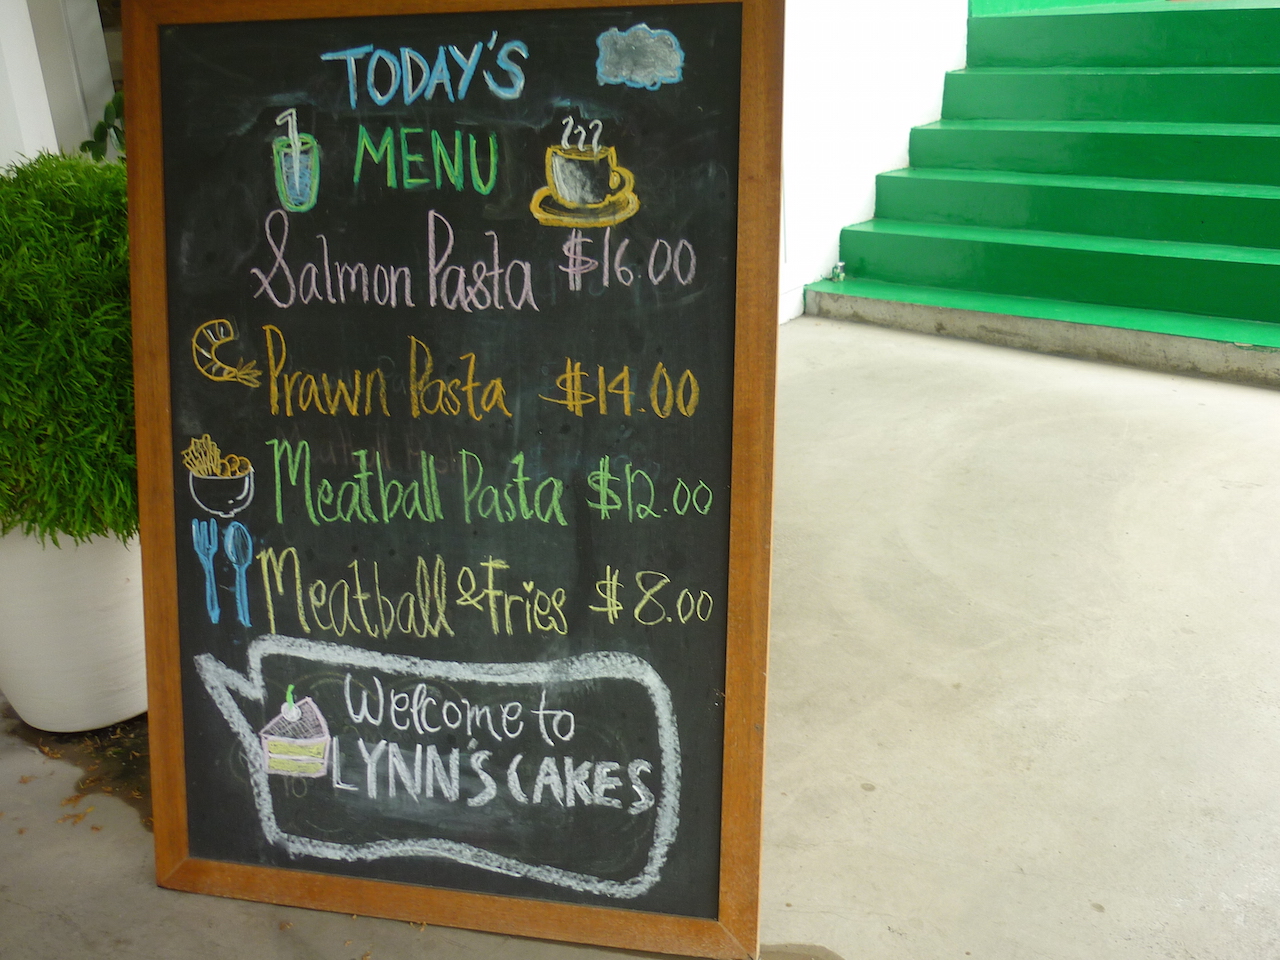 TODAY'S
MENU
Salmon Pasta $16.00
Prawn Pasta $14.00
Meatball Pasta $12.00
Meatball & Fries $8.00
Welcome to
LYNN'S CAKES